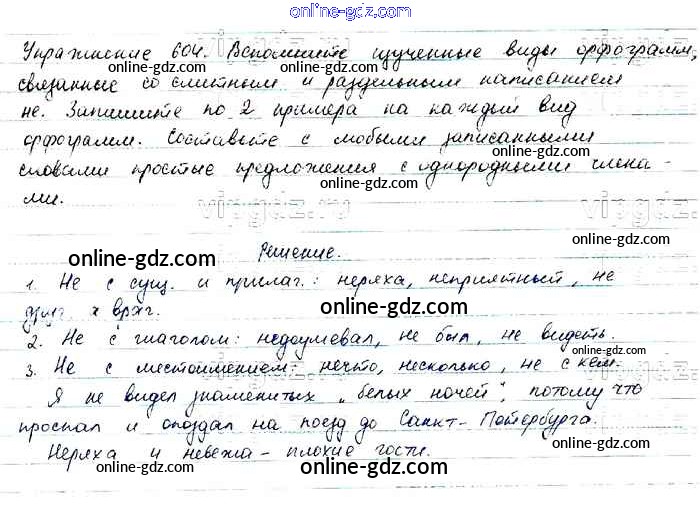 online-gdz.com
Упражнение 604. Вспомните изученные виды орфограмм,
связанные со слитным и раздельным написанием
online-gdz.com online-gdz.com
не. Запишите по 2 примера на каждый вид
орфограмм. Составьте с любыми записанными
online-gdz.com online-gdz.com
словами простые предложения с однородными члена-
online-gdz.com online-gdz.com
ми.
vipgdz.ru vipgdz.ru
Решение.
online-gdz.com online-gdz.com
1. Не с сущ. и прилаг.: неряха, неприятный, не
друг, а враг.
online-gdz.com online-gdz.com
2. Не с глаголом: недоумевал, не был, не видеть.
online-gdz.com online-gdz.com
3. Не с местоимением: нечто, несколько, не с кем.
Я не видел знаменитых „белых ночей", потому что
online-gdz.com online-gdz.com
проспал и опоздал на поезд до Санкт-Петербурга.
online-gdz.com online-gdz.com
Неряха и невежа - плохие гости.
online-gdz.com online-gdz.com